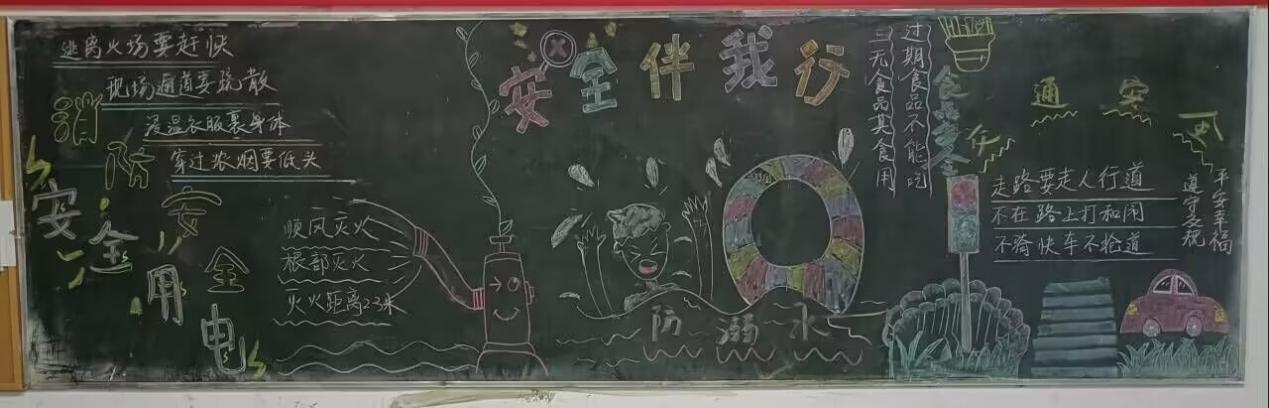 安全伴我行
逃离火场要赶快
现场通道要疏散
浸湿衣服裹身体
穿过浓烟要低头
消防安全
安全用电
顺风灭火
根部灭火
火火距离2-3米
防溺水
过期食品不能吃
三无食品其食用
食品安全
交通安全
走路要走人行道
不在路上打和闹
不骑快车不抢道
遵守交规
平安幸福